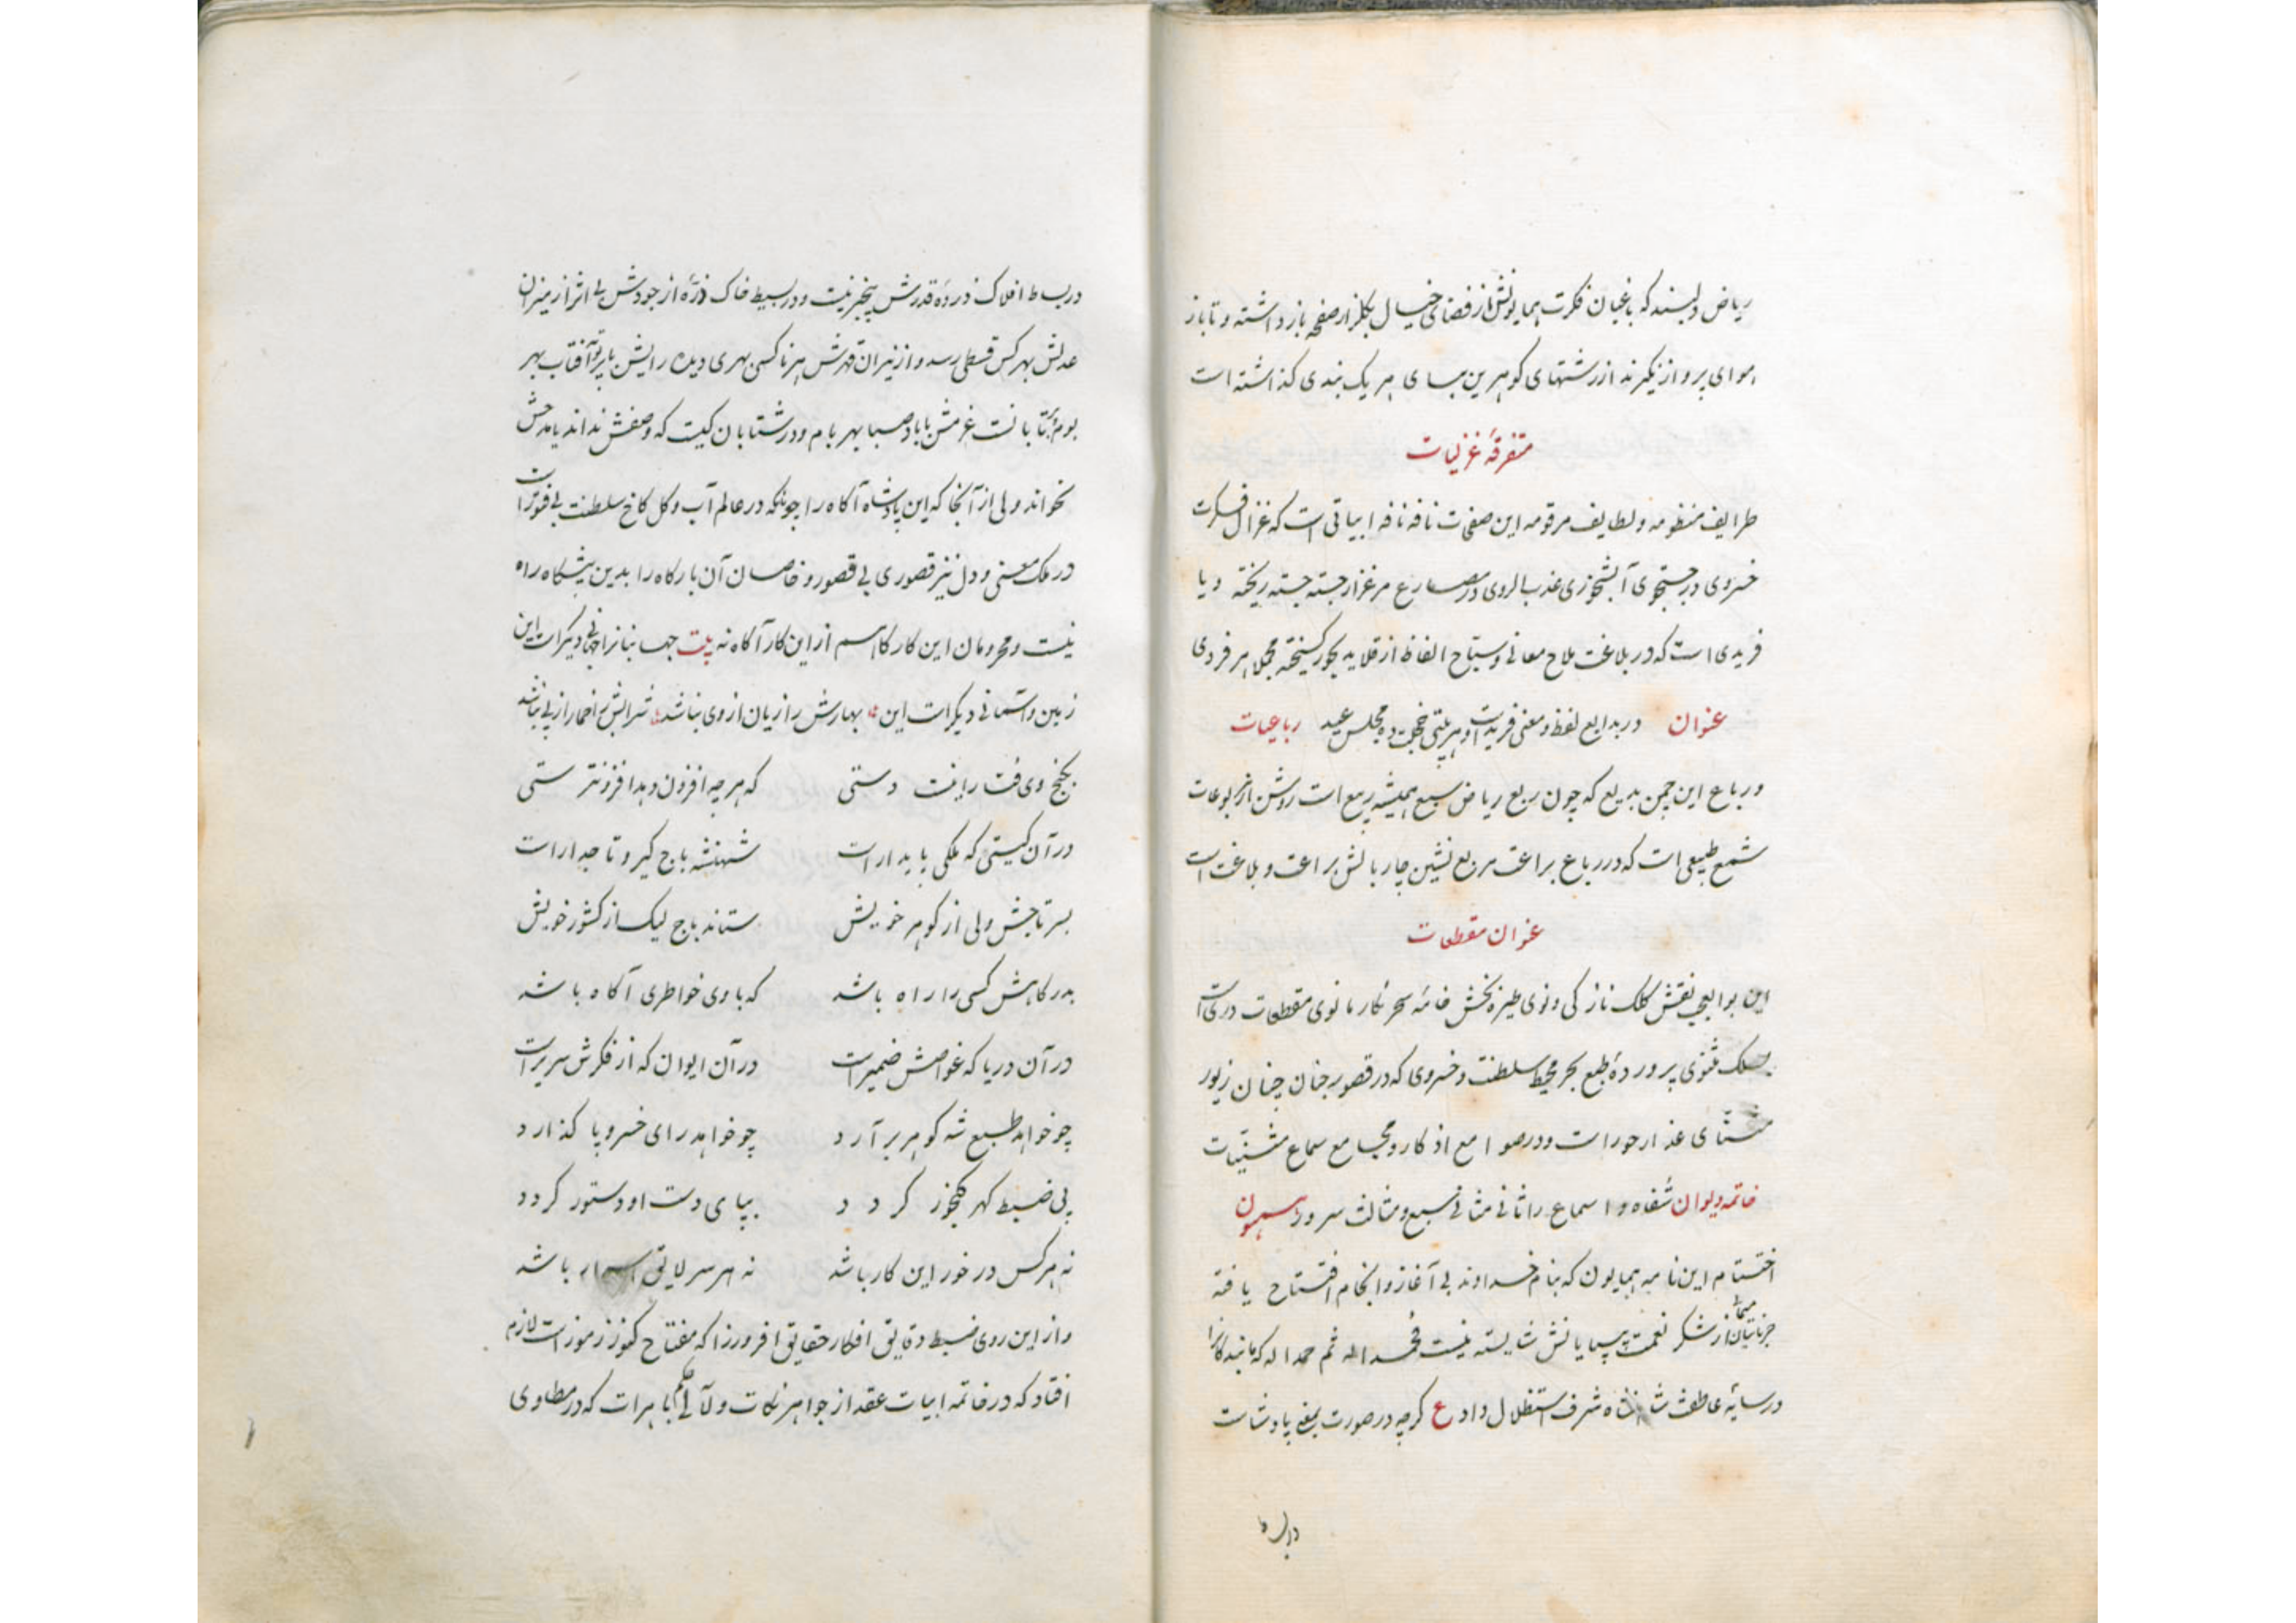 ریاض دلپسند که باغبان فکرت همایونش از فضای خیال بگلزار صفحه باز داشته و تا باز
هوای پرواز نگیرند از رشتهای گوهرین بپای هر یک بندی گذاشته است
متفرقهٔ غزلیات
طرایف منظومه و لطایف مرقومه این صفحات نافه نافه ابیاتی است که غزال فکرت
خسروی در جستجوی آبشخوری عذب الروی در مصارع مرغزار جسته جسته ریخته و یا
فریدی است که در بلاغت ملاح معانی و سباح الفاظ از قلاید بحور گسیخته مجملا هر فردی
عنوان در بدایع لفظ و معنی فریدیست و هر بیتی خجلت ده مجلس عید رباعیات
و رباع این چمن بدیع که چون ربع ریاض سبع همیشه ربیع است روشن از مربوعات
شمع طبیعی است که در رباع براعت مربع نشین چاربالش براعت و بلاغت است
عنوان مقطعات
این بوالعجب نقش کلک نازکی و نوی طیره بخش خامه سحر نگار مانوی مقطعات دریست
مسلک مثنوی پروردهٔ طبع بحر محیط سلطنت و خسروی که در قصور جنان چنان زیور
عذار حور است و در صوامع اذکار و مجامع سماع مثنیّات
خاتمه دیوان شفاه و اسماع را ثانی مثانی سبع و مثالث سرور
اختتام این نامه همایون که بنام خداوند بی آغاز و انجام افتتاح یافته
از شکر نعمت بیپایانش شایسته نیست فحمد اله ثم حمدا له که ما بندگانرا
در سایهٔ عاطفت شاهنشاه شرف استظلال داد ع گرچه در صورت بمعنی پادشاست
دربساط
در بساط افلاک ذروهٔ قدرش پنجبر نیست و در بسیط خاک ذرهٔ از جودش بی اثر از میزان
عدلش بهر کس قسطی رسد و از نیران قهرش هر ناکس بهری دیده رایش با پرتو آفتاب بهر
بوم بر تابانست عزمش با باد صبا بهر بام و در شتابان کیست که وصفش نداند یا مدحش
نخواند ولی از آنجا که این پادشاه آگاه را چونکه در عالم آب و گل کاخ سلطنت بی فتور است
در ملک معنی و دل نیز قصوری بی قصور و خاصان آن بارگاه را بدین پیشگاه راه
نیست و محرومان این کارگاهم از این کار آگاه نه بیت جهانبانرا جهانی دیگر است این
زمین و آسمانی دیگر است این بهارش را زیان از وی نباشد شرابش را خمار از پی نباشد
بگنج وی فت رایت دستی که هر چه افزون دهد افزونتر ستی
در آن گیتی که ملکی پایدار است شهنشه باج گیر و تاجدار است
بسر تاجش ولی از گوهر خویش ستاند باج لیک از کشور خویش
بدرگاهش کسی را راه باشد که با وی خواطری آگاه باشد
در آن دریا که غواصش ضمیر است در آن ایوان که از فکرش سریر است
چو خواهد طبع شه گوهر برآرد چو خواهد رای خسرو پا گذارد
پی ضبط گهر گنجور گردد بپای دست او دستور گردد
نه هر کس در خور این کار باشد نه هر سر لایق اسرار باشد
و از این روی ضبط دقایق افکار حقایق افروز را که مفتاح کنوز رموز است لازم
افتاد که در خاتمه ابیات عقد از جواهر نکات و لآلی حکم باهرات که در مطاوی